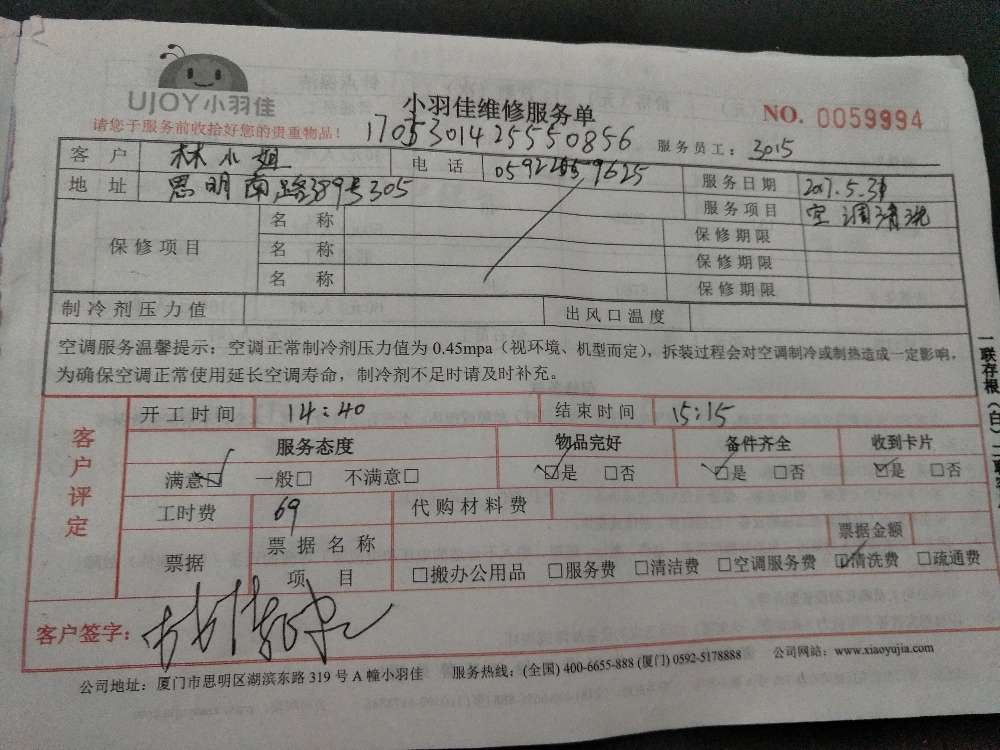 UJOY小羽佳
小羽佳维修服务单
NO. 0059994
请您于服务前收拾好您的贵重物品!
17053014255550856
服务员工: 3015
客 户 林小姐 电 话 服务日期 2017.5.31
地 址 思明南路389号305 服务项目 空调清洗
保修项目 名 称 保修期限
名 称 保修期限
名 称 保修期限
制冷剂压力值 出风口温度
空调服务温馨提示:空调正常制冷剂压力值为 0.45mpa(视环境、机型而定),拆装过程会对空调制冷或制热造成一定影响,
为确保空调正常使用延长空调寿命,制冷剂不足时请及时补充。
客户评定
开工时间 14:40 结束时间 15:15
服务态度 物品完好 备件齐全 收到卡片
满意☑ 一般□ 不满意□ ☑是 □否 ☑是 □否 ☑是 □否
工时费 69 代购材料费
票据 票据名称 票据金额
项 目 □搬办公用品 □服务费 □清洁费 □空调服务费 ☑清洗费 □疏通费
客户签字:
公司地址:厦门市思明区湖滨东路 319 号 A 幢小羽佳 服务热线:(全国) 400-6655-888 (厦门) 0592-5178888 公司网站:www.xiaoyujia.com
一联存根(白)